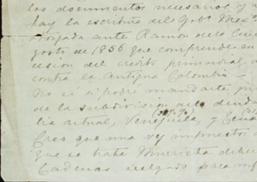 los documentos necesarios y a
hay la escritura del Gob.º Mex.º
forjada ante Ramon de la Cue
gosto de 1856 que comprende en
cesion del credito primordial, a
contra la Antigua Colombia -
No sé si podré mandarte, p
de la subdivision de la deuda
lia actual, Venezuela, y Ecua
Creo que una vez impuesto
que se trata
Cadenas